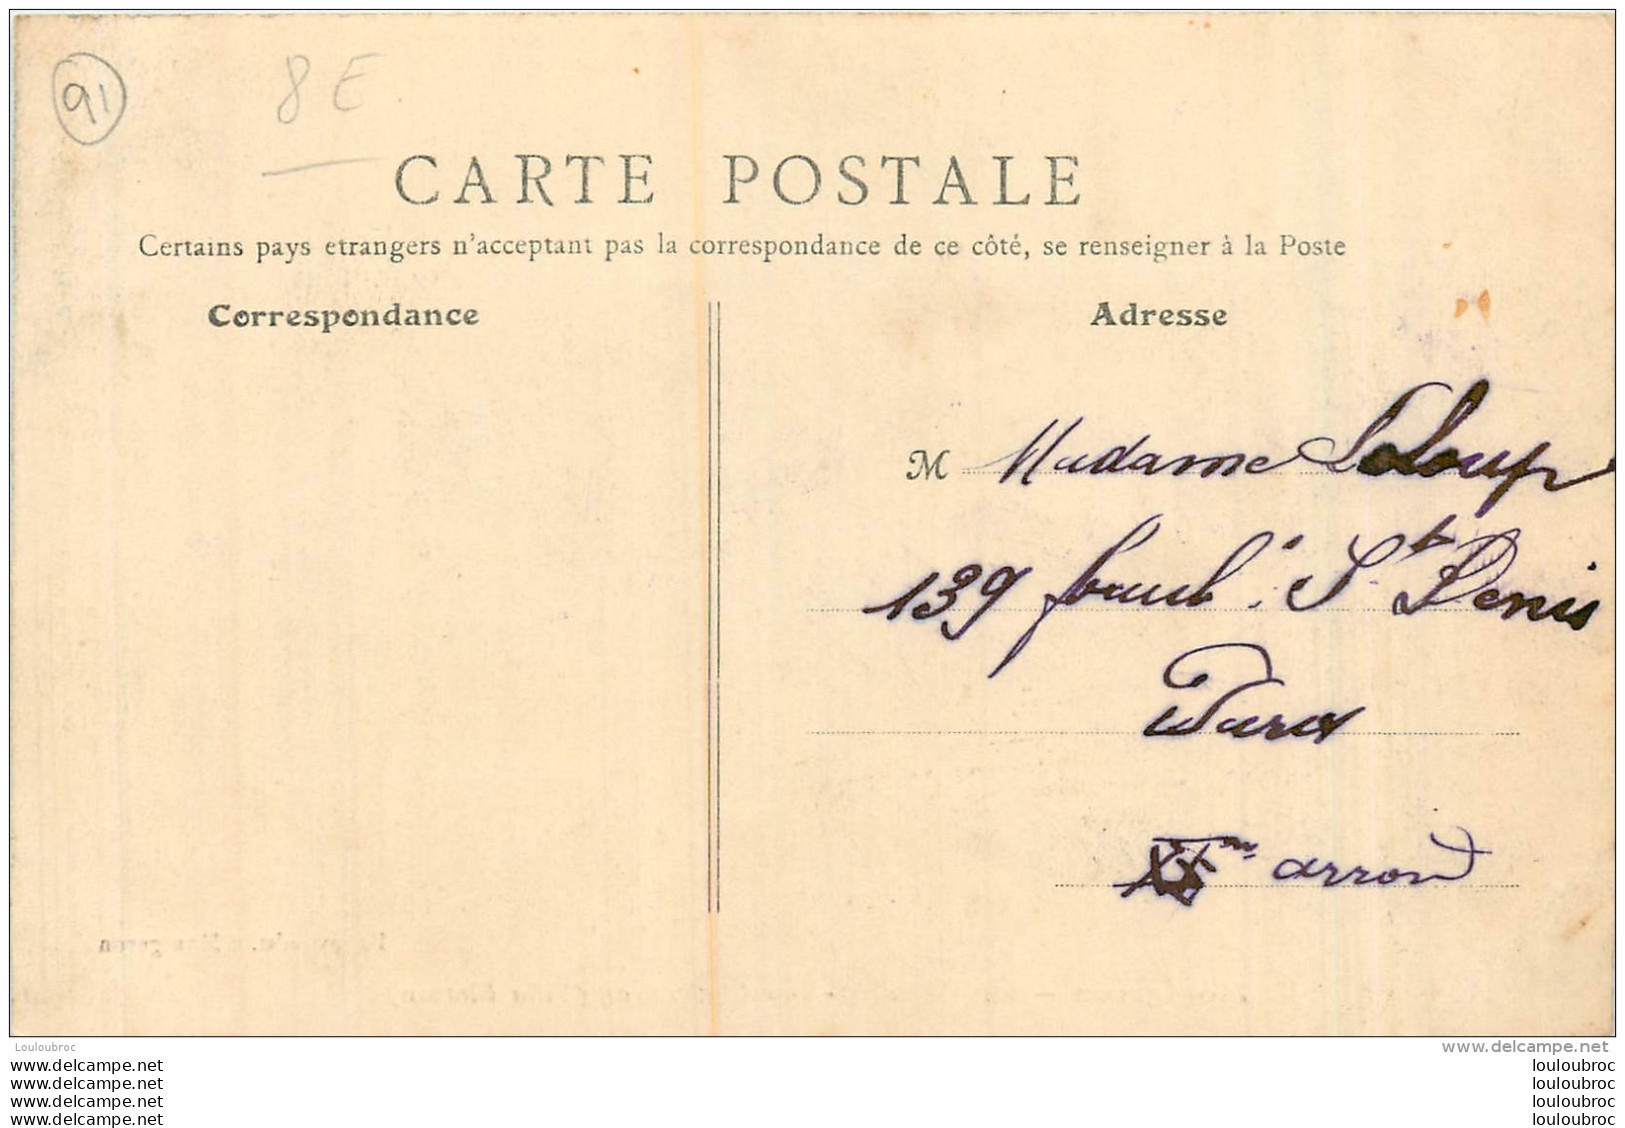 91
8E
CARTE POSTALE
Certains pays etrangers n'acceptant pas la correspondance de ce côté, se renseigner à la Poste
Correspondance
Adresse
M Madame Leloup
139 faub. St Denis
Paris
arrond
Louloubroc
www.delcampe.net
www.delcampe.net louloubroc
www.delcampe.net louloubroc
www.delcampe.net louloubroc
www.delcampe.net louloubroc